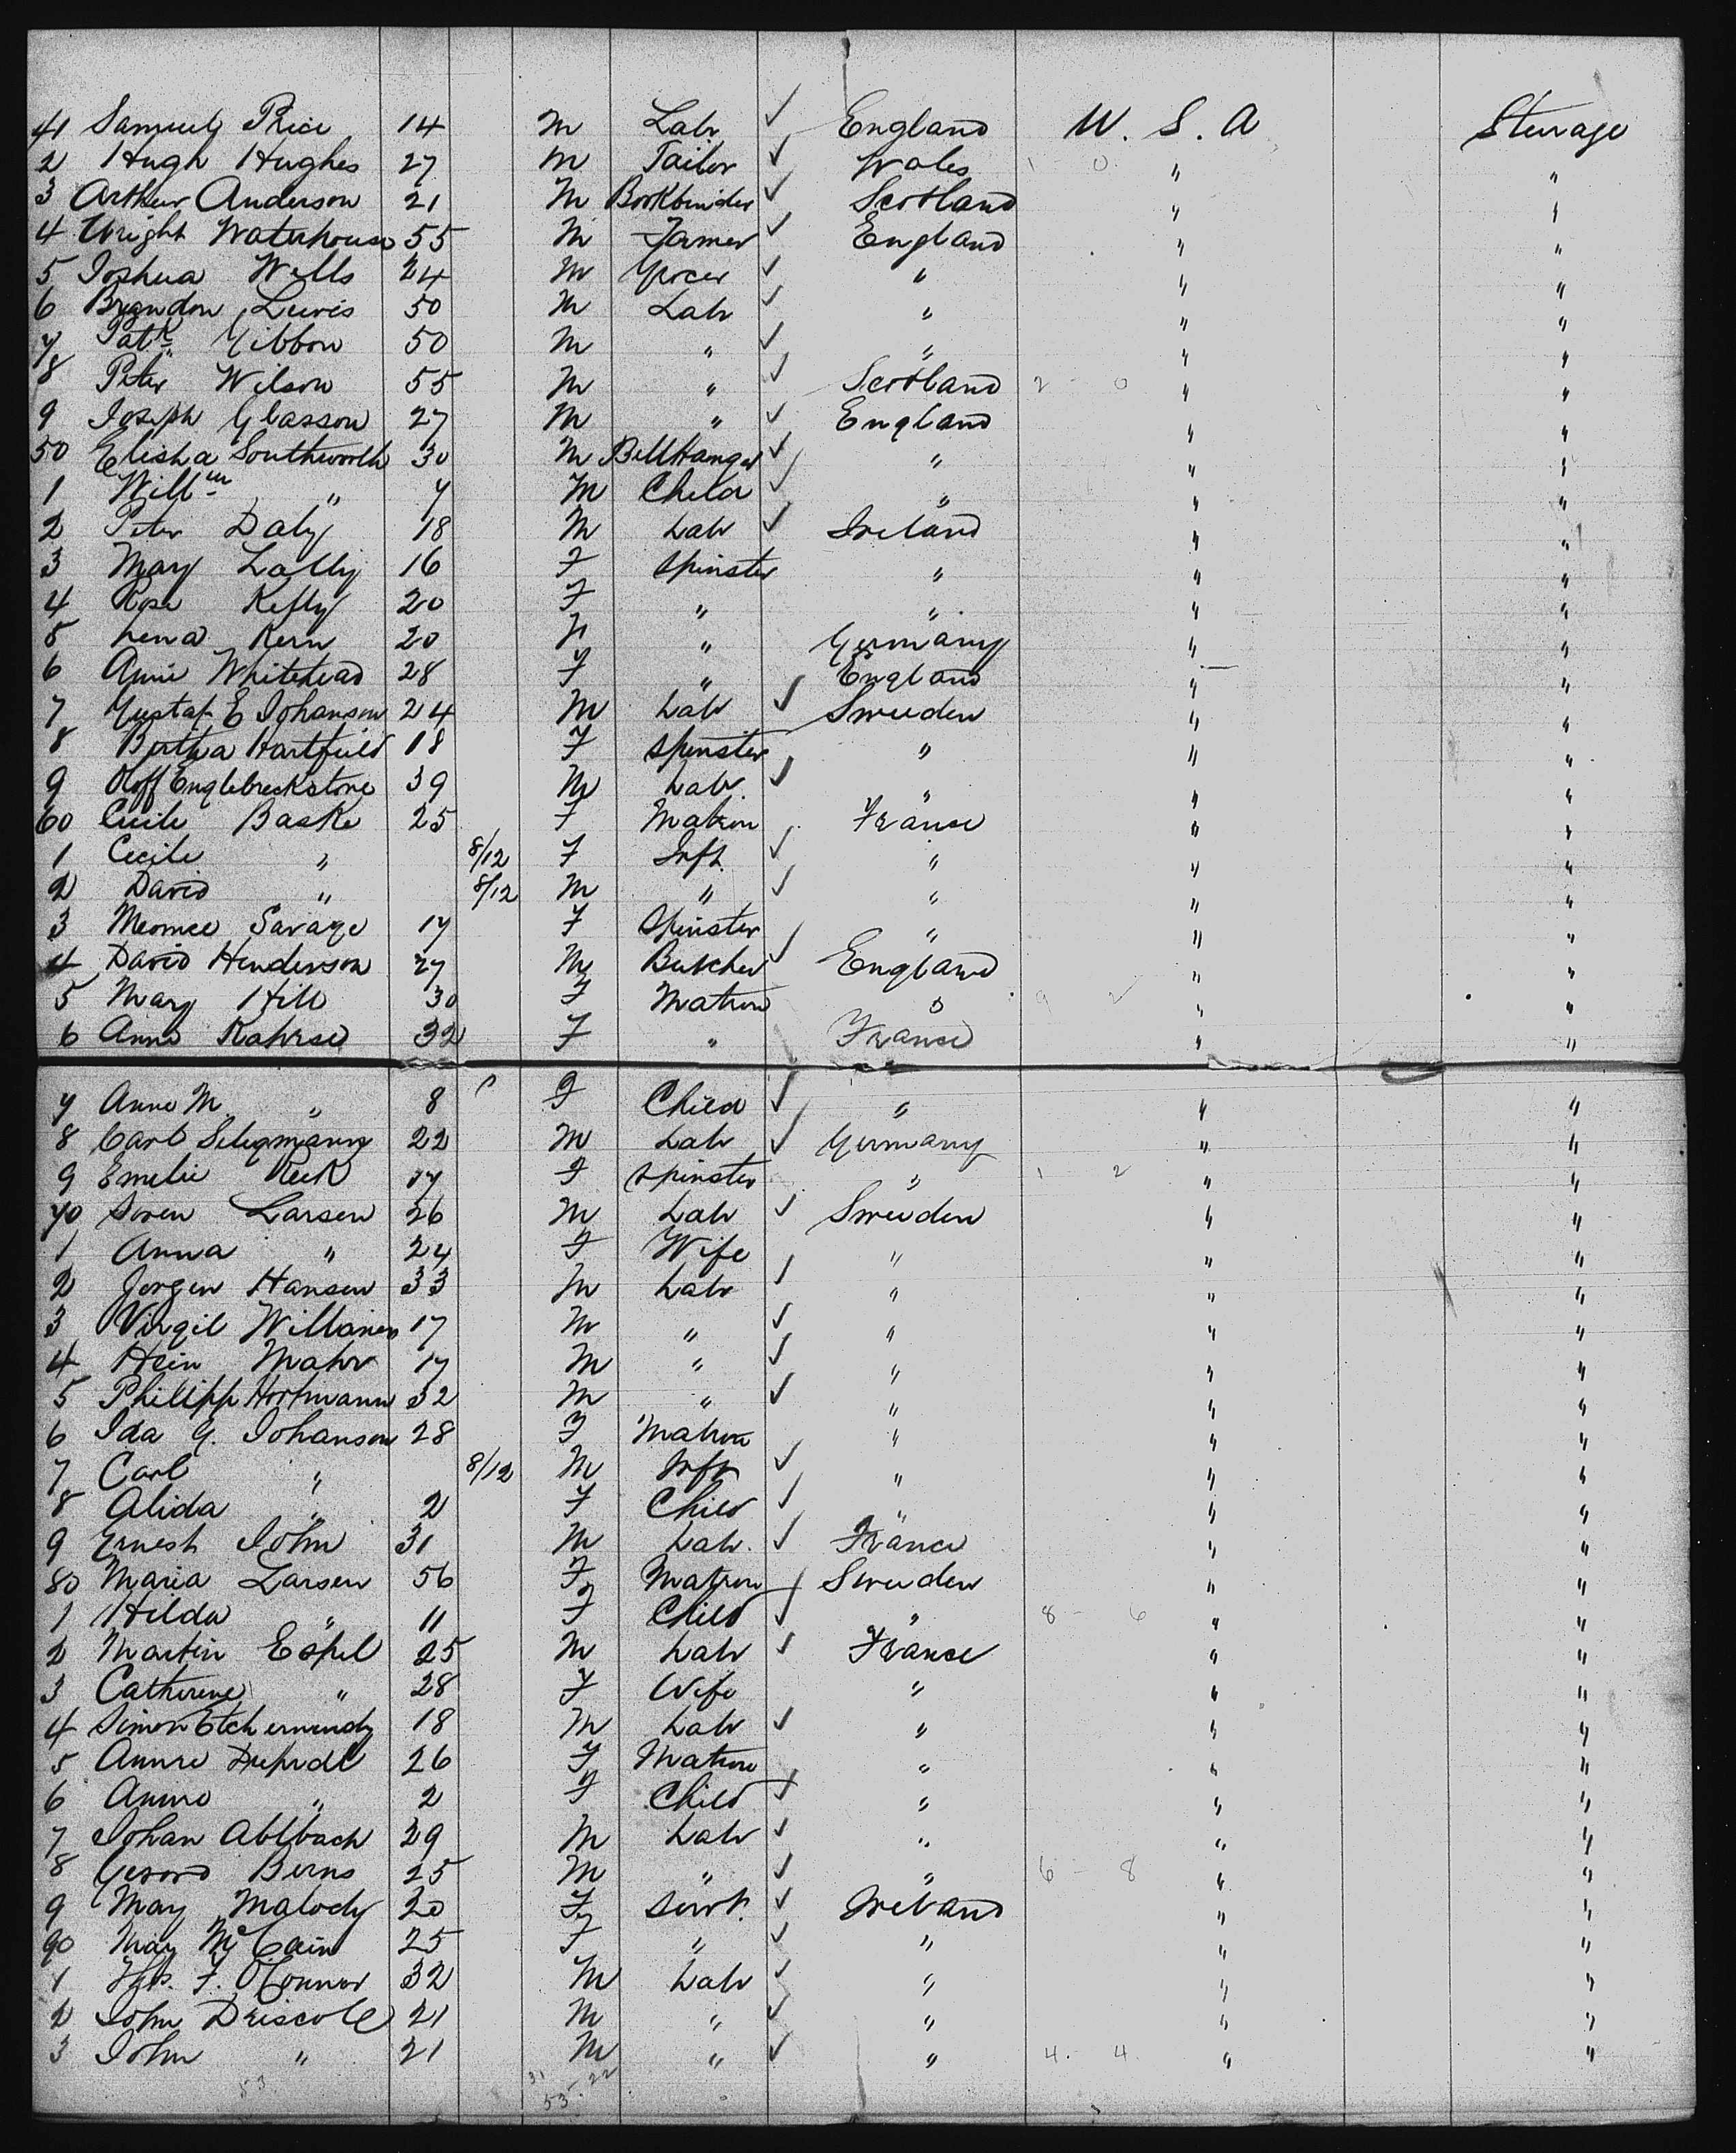 41 Samuel Price 14 M Labr ✓ England U. S. A Steerage
2 Hugh Hughes 27 M Tailor ✓ Wales 1 - 0 " "
3 Arthur Anderson 21 M Bookbinder ✓ Scotland " "
4 Wright Waterhouse 55 M Farmer ✓ England " "
5 Joshua Wells 24 M Grocer ✓ " " "
6 Brandon Lewis 50 M Labr ✓ " " "
7 Patk Gibbon 50 M " ✓ " " "
8 Peter Wilson 55 M " ✓ Scotland 2 - 0 " "
9 Joseph Glasson 27 M " ✓ England " "
50 Elisha Southworth 30 M Bell Hanger ✓ " " "
1 Willm " 7 M Child ✓ " " "
2 Peter Daly 18 M Labr ✓ Ireland " "
3 Mary Lally 16 F Spinster " " "
4 Rose Kelly 20 F " " " "
5 Lena Kern 20 F " Germany " "
6 Annie Whitehead 28 F " England " "
7 Gustaf E Johanson 24 M Labr ✓ Sweeden " "
8 Bertha Hartfield 18 F Spinster " " "
9 Oloff Englebreckstone 39 M Labr. ✓ " " "
60 Cecile Baske 25 F Matron France " "
1 Cecile " 8/12 F Inft ✓ " " "
2 David " 8/12 M " ✓ " " "
3 Savage 17 F Spinster " " "
4 David Henderson 27 M Butcher ✓ England " "
5 Mary Hill 30 F Matron " 9 " "
6 Anna 32 F " France " "
7 Anna M. " 8 F Child ✓ " " "
8 Carl Seligmann 22 M Labr ✓ Germany " "
9 Emelie Reck 17 F Spinster " 1 2 " "
70 Soren Larsen 26 M Labr ✓ Sweeden " "
1 Anna " 24 F Wife " " "
2 Jorgen Hansen 33 M Labr ✓ " " "
3 Virgil 17 M " ✓ " " "
4 Hein Mahr 17 M " ✓ " " "
5 Philipp Hortmann 32 M " ✓ " " "
6 Ida G. Johanson 28 F Matron " " "
7 Carl " 8/12 M Inft ✓ " " "
8 Alida " 2 F Child ✓ " " "
9 Ernest John 31 M Labr. ✓ France " "
80 Maria Larsen 56 F Matron Sweeden " "
1 Hilda " 11 F Child ✓ " 8 - 6 " "
2 Martin Espel 25 M Labr ✓ France " "
3 Catherine " 28 F Wife " " "
4 Simon Etchemendy 18 M Labr ✓ " " "
5 26 F Matron " " "
6 " 2 F Child ✓ " " "
7 Johan Ablbach 29 M Labr ✓ " " "
8 Gerard Berns 25 M " ✓ " 6 - 8 " "
9 May Malody 20 F Servt. ✓ Ireland " "
90 May McCain 25 F " ✓ " " "
1 F. O'Connor 32 M Labr ✓ " " "
2 John Driscoll 21 M " ✓ " " "
3 John " 21 M " ✓ " 4. 4. " "
53 31 53. 22